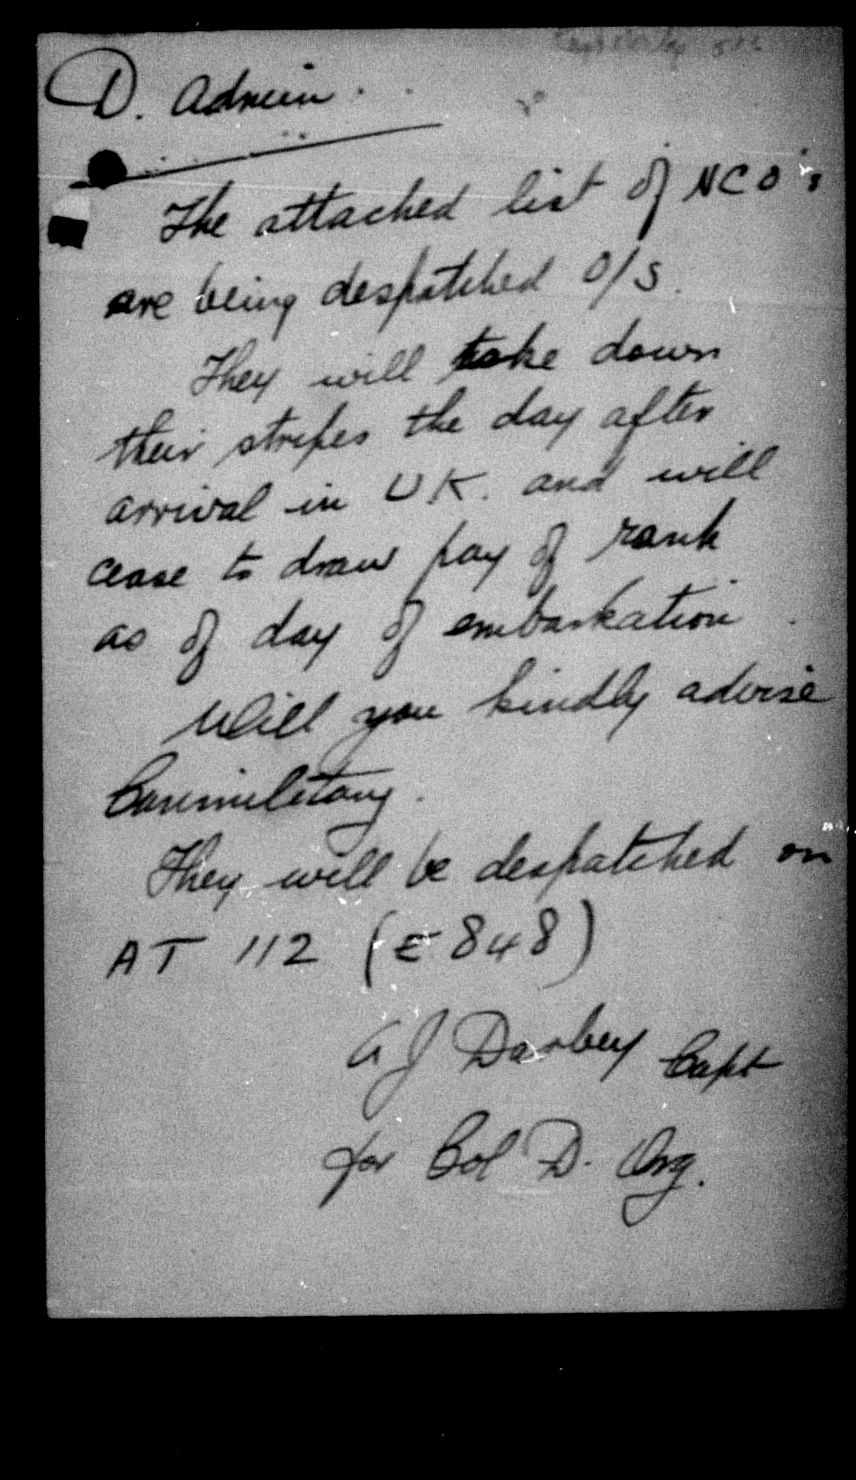 D. Admin.
The attached list of NCO's
are being despatched O/S.
They will take down
their stripes the day after
arrival in UK. and will
cease to draw pay of rank
as of day of embarkation.
Will you kindly advise
Canmilitary.
They will be despatched on
AT 112 (E 848)
A J Darbey Capt
for Col D. Org.